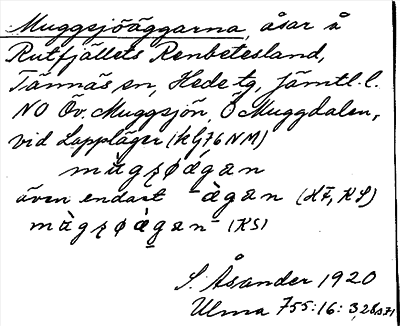 Muggsjöäggarna, åsar å
Rutfjällets Renbetesland,
Tännäs sn, Hede tg, Jämtl. l.
NO Öv. Muggsjön, Ö Muggdalen,
vid Lappläger (KG76 NM)
även endast -àgan (HF, KS)
(KS)
S. Åsander 1920
Ulma 755:16: 3,28